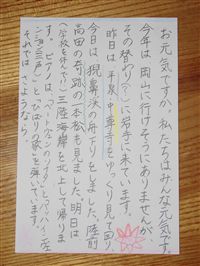 お元気ですか。私たちはみんな元気です。
今年は岡山に行けそうにありませんが
その替わり(?)に岩手に来ています。
昨日は平泉中尊寺をゆっくり見て回り、
今日は猊鼻渓の舟下りをしました。陸前
高田の奇跡の一本松も見ました。明日は
(学校を休んで!)三陸海岸を北上して帰りま
す。ピアノは「ベートーヴェンのソナタ
と「ひばりの歌」を弾いています。
それでは さようなら。